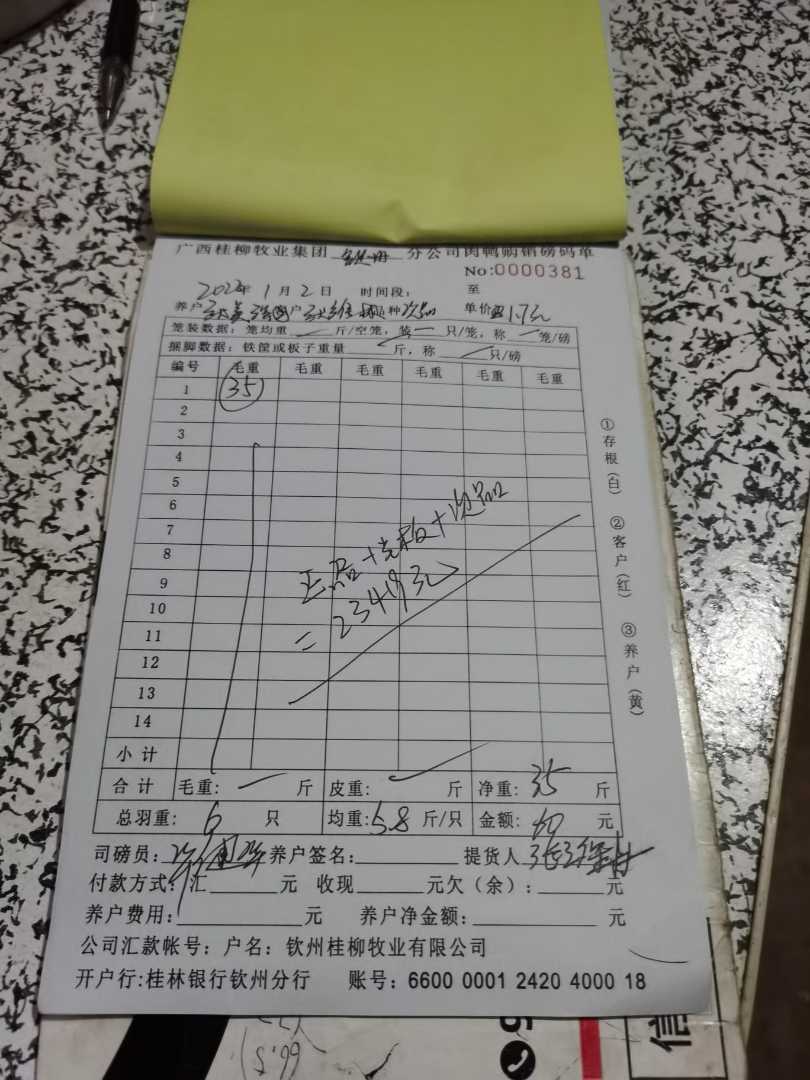 广西桂柳牧业集团 分公司肉鸭购销磅码单
No:0000381
2022年1月2日 时间段: 至
养户 客户 品种次品 单价 1.7元
笼装数据: 笼均重 斤/空笼, 装 只/笼, 称 笼/磅
捆脚数据: 铁筐或板子重量 斤, 称 只/磅
编号 毛重 毛重 毛重 毛重 毛重 毛重
1 35
2
3
4
5
6
7
8
9
10
11
12
13
14
小计
正品+ +次品
=23419元
合计 毛重: 斤 皮重: 斤 净重: 35 斤
总羽重: 6 只 均重: 5.8 斤/只 金额: 60 元
司磅员: 养户签名: 提货人
付款方式: 汇 元 收现 元欠(余): 元
养户费用: 元 养户净金额: 元
公司汇款帐号: 户名: 钦州桂柳牧业有限公司
开户行:桂林银行钦州分行 账号: 6600 0001 2420 4000 18
①存根(白) ②客户(红) ③养户(黄)
信